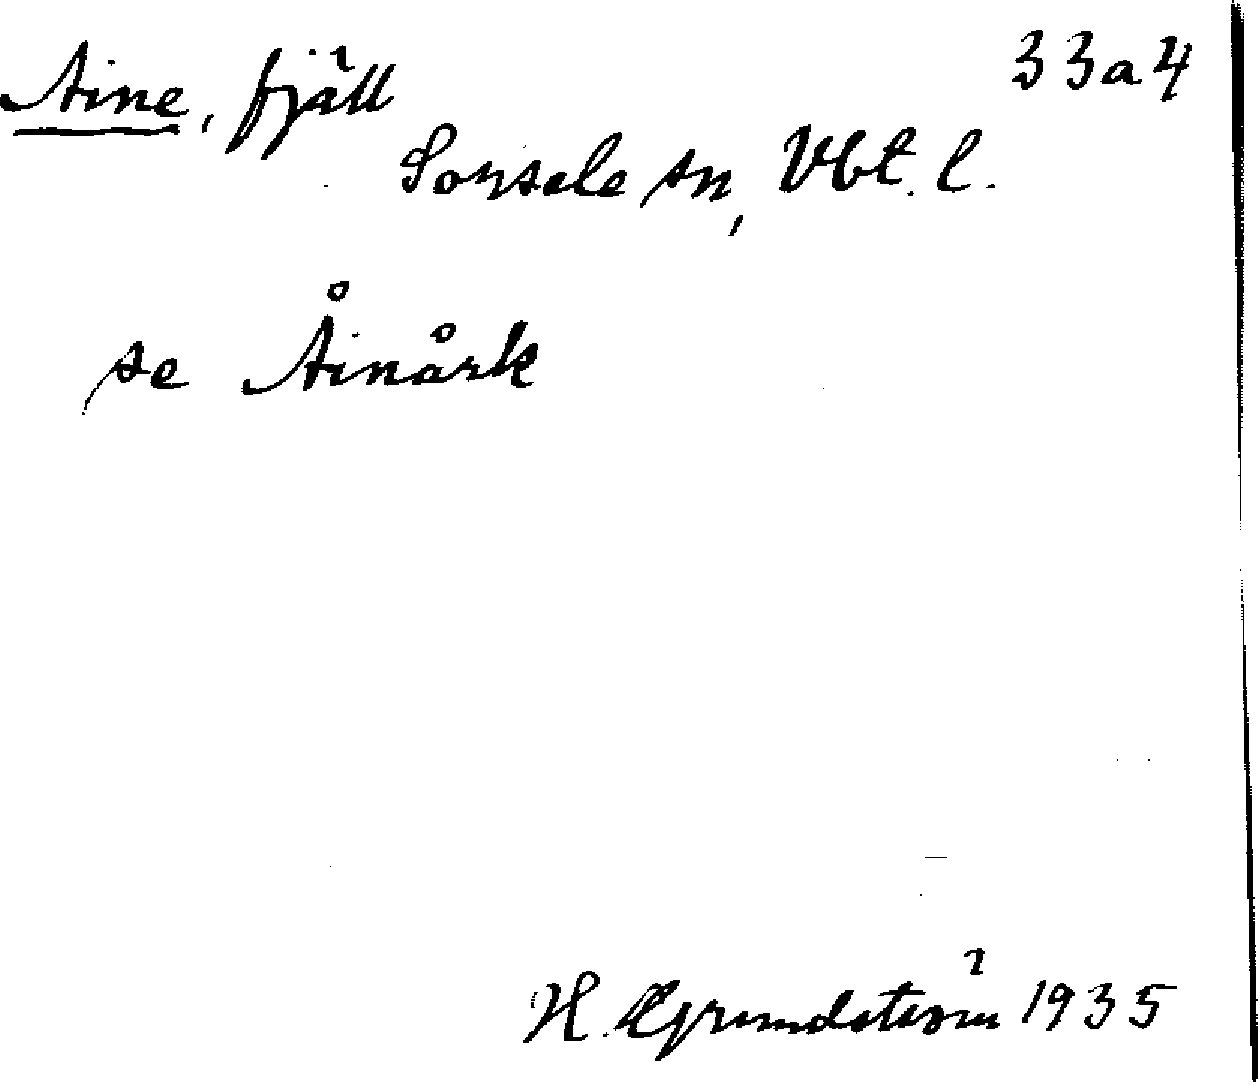 Aine, fjäll
33a4
Sorsele sn, Vbt. l.
se Åinårk
H. Grundström 1935